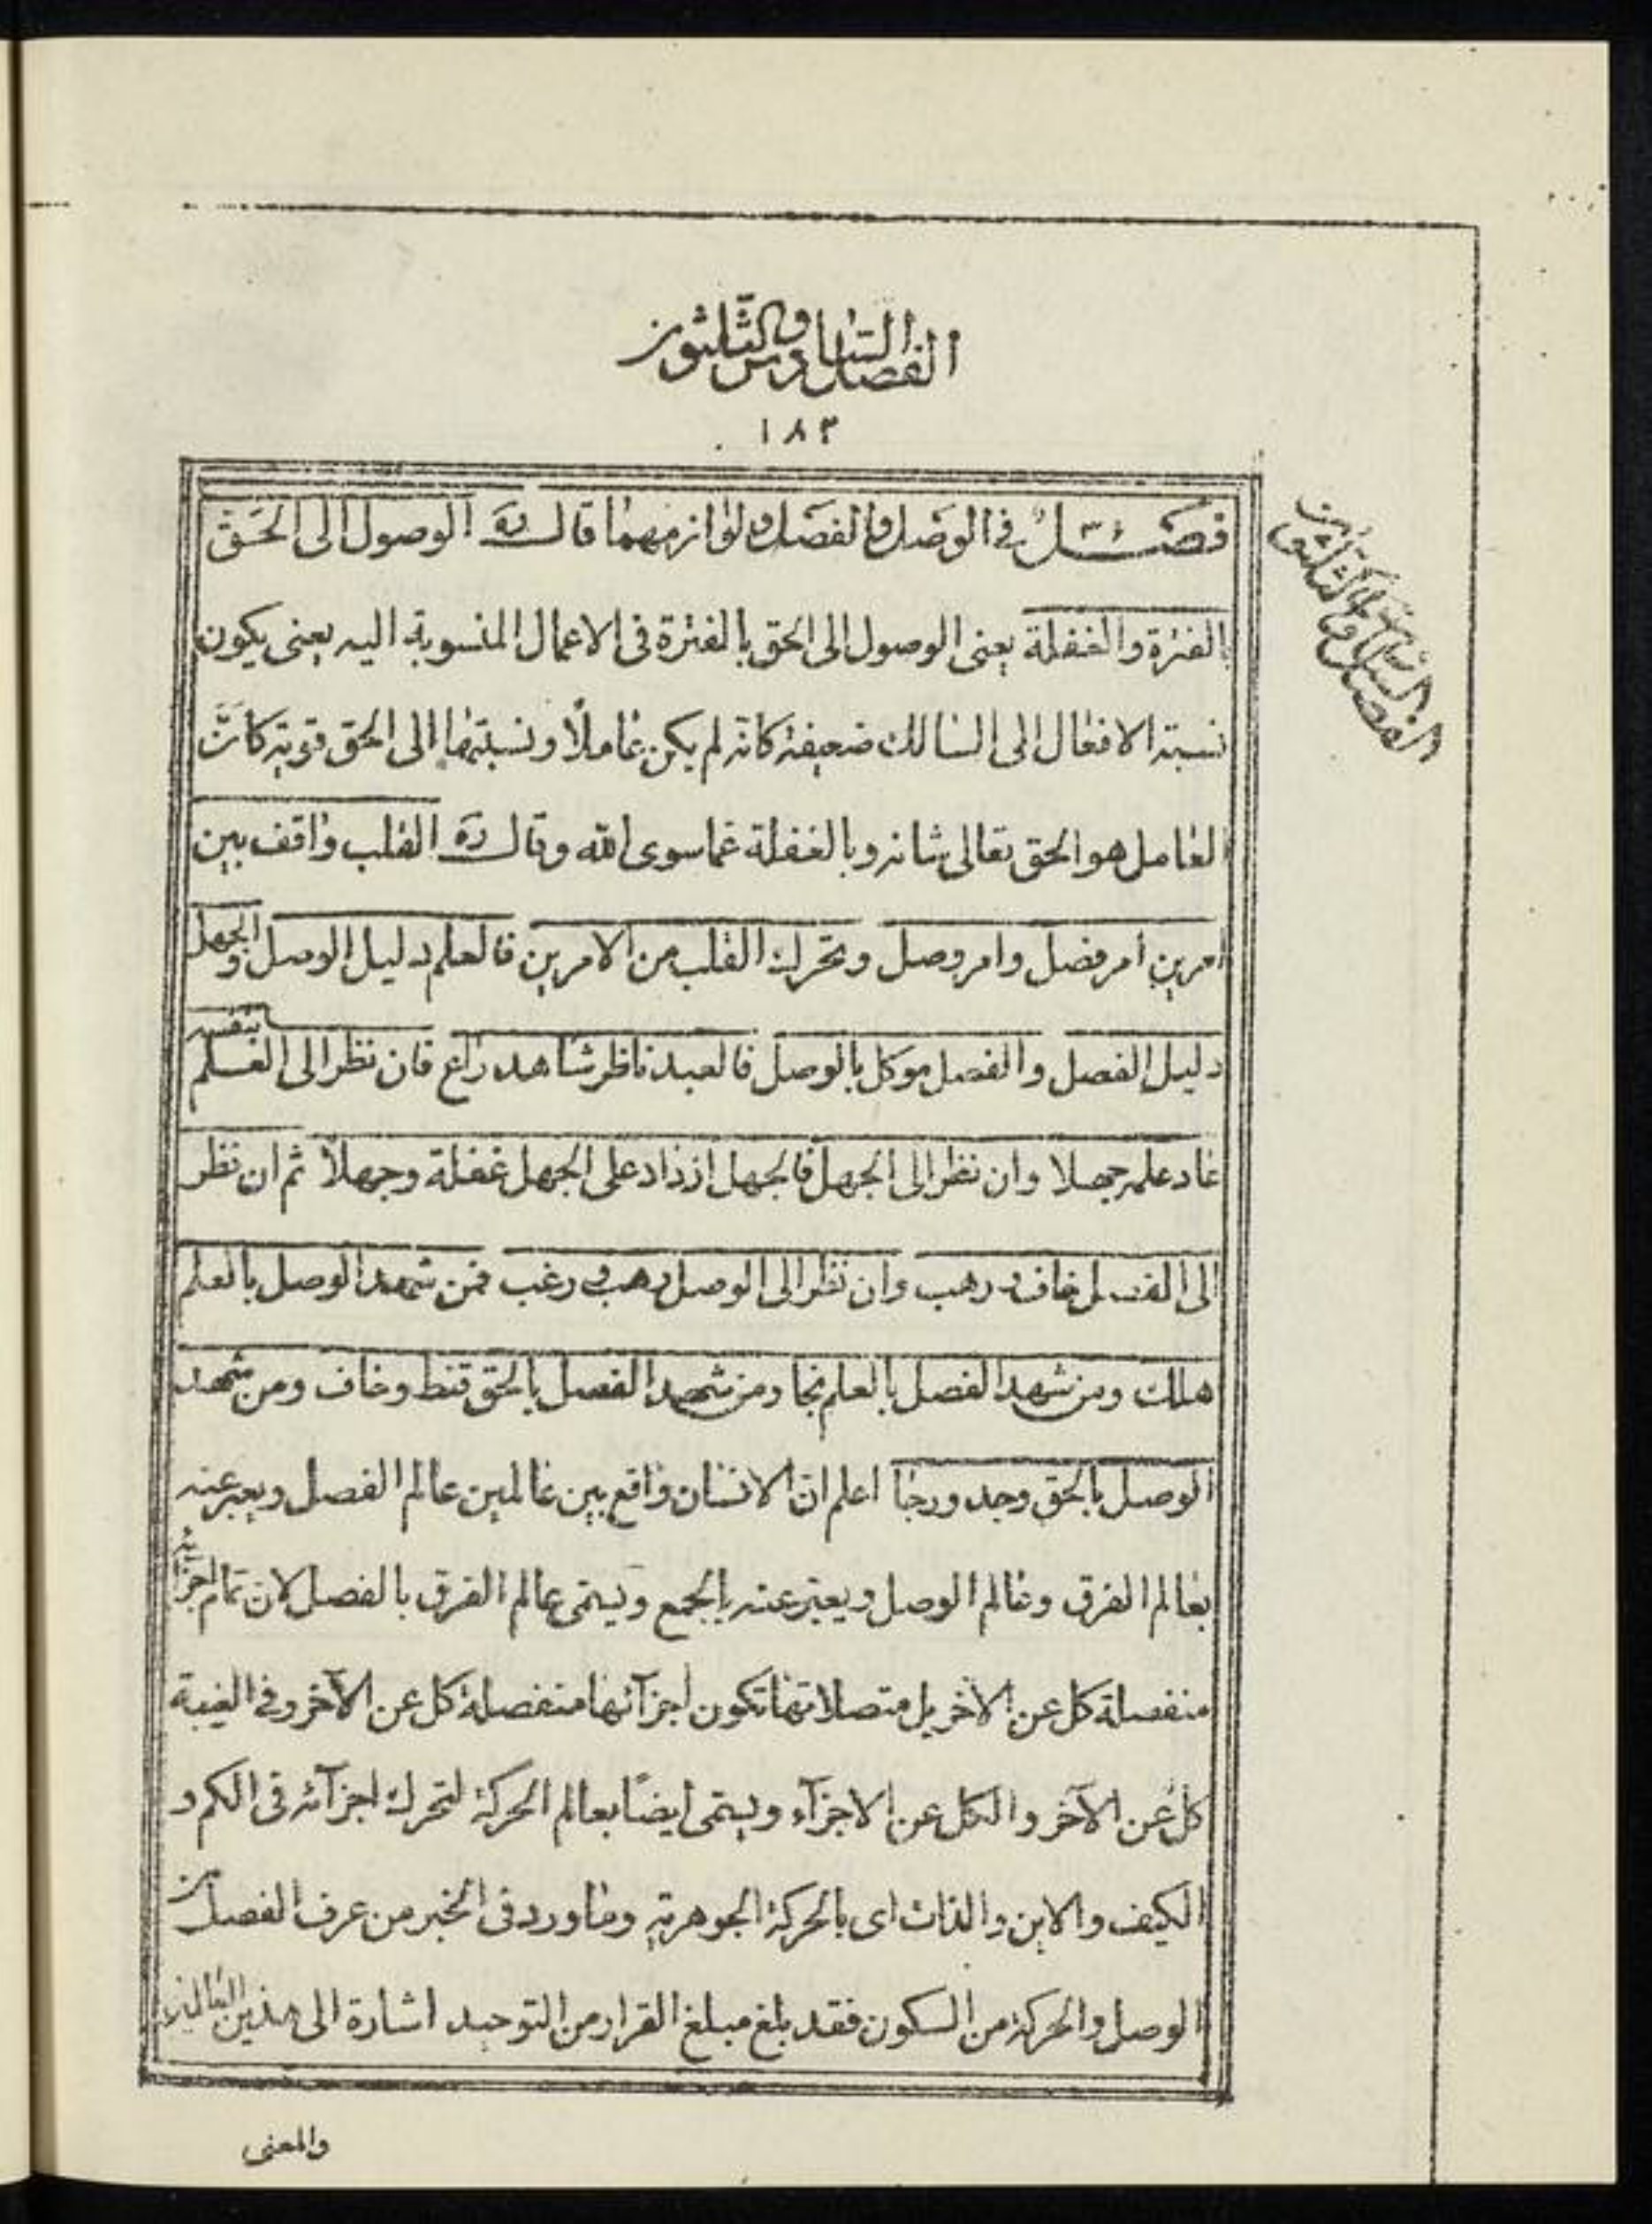 الفصل السادس والثلثون
١٨٣
فصل ٣٦ في الوصل والفصل ولوازمهما قال ره الوصول الى الحق
بالفترة والغفلة يعنى الوصول الى الحق بالفترة فى الاعمال المنسوبة اليه يعنى يكون
نسبة الافعال الى السالك ضعيفة كانه لم يكن عاملًا ونسبتها الى الحق قوية كانّ
العامل هو الحق تعالى شانه وبالغفلة عما سوى الله وقال ره القلب واقف بين
امرين امر فصل وامر وصل وتحرك القلب من الامرين فالعلم دليل الوصل والجهل
دليل الفصل والفصل موكل بالوصل فالعبد ناظر شاهد راع فان نظر الى العلم بنفسه
عاد علمه جهلا وان نظر الى الجهل فالجهل ازداد على الجهل غفلة وجهلا ثم ان نظر
الى الفصل خاف ورهب وان نظر الى الوصل رهب و رغب فمن شهد الوصل بالعلم
هلك ومن شهد الفصل بالعلم نجا ومن شهد الفصل بالحق قنط وخاف ومن شهد
الوصل بالحق وجد ورجا اعلم انّ الانسان واقع بين عالمين عالم الفصل ويعبر عنه
بعالم الفرق وعالم الوصل ويعبّر عنه بالجمع ويسمّى عالم الفرق بالفصل لان تمام اجزائه
منفصلة كل عن الاخر بل متصلاتها تكون اجزآئها منفصلة كل عن الآخر وفى الغيبة
كلّ عن الآخر والكل عن الاجزآء ويسمّى ايضًا بعالم الحركة لتحرك اجزآئه فى الكم و
الكيف والاين والذات اى بالحركة الجوهرية وما ورد فى الخبر من عرف الفصل من
الوصل والحركة من السكون فقد بلغ مبلغ القرار من التوحيد اشارة الى هذين العالمين
والمعنى
الفصل السادس والثلثون